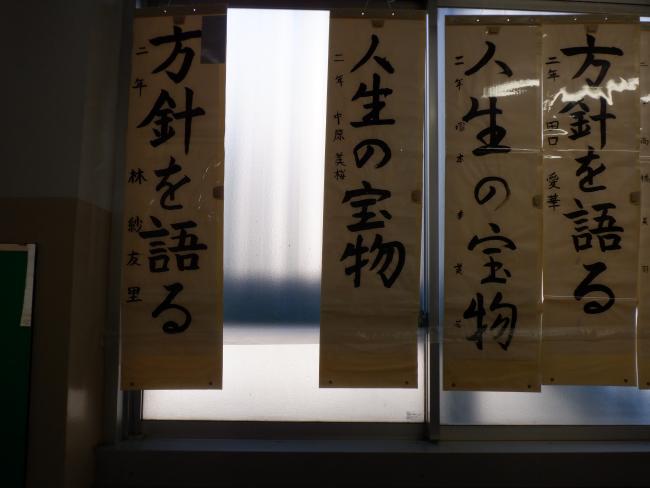 方針を語る
二年 林紗友里
人生の宝物
二年 中原美桜
人生の宝物
二年
方針を語る
二年 田口愛華